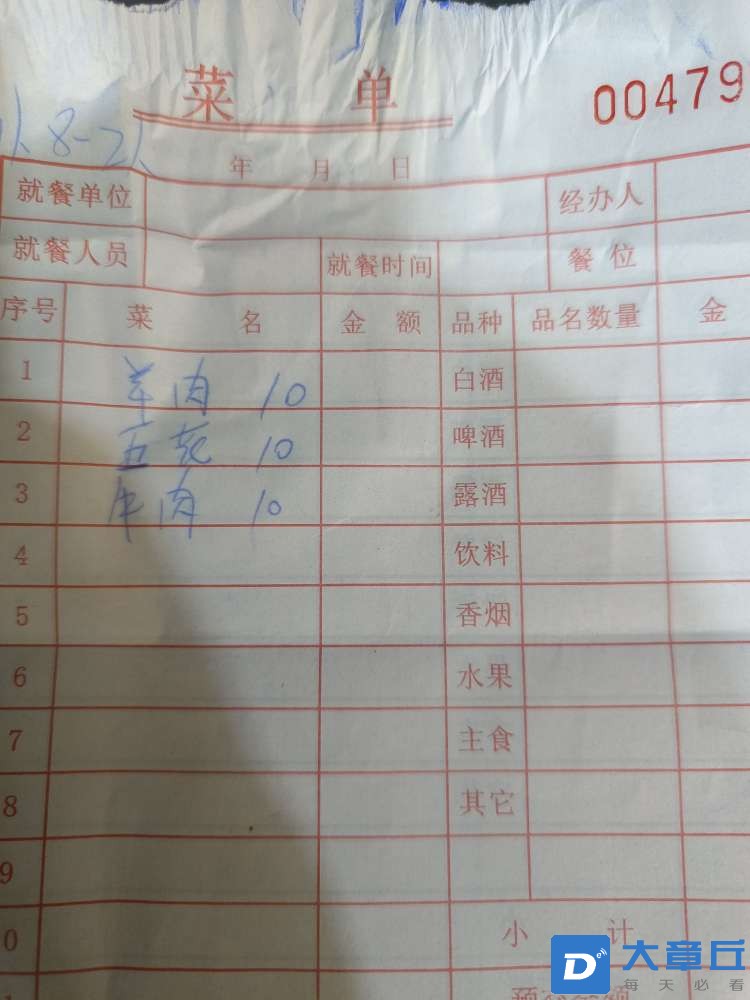 菜 单
00479
8-2
年 月 日
就餐单位 经办人
就餐人员 就餐时间 餐位
序号 菜 名 金 额 品种 品名数量 金
1 羊肉 10 白酒
2 五花 10 啤酒
3 牛肉 10 露酒
4 饮料
5 香烟
6 水果
7 主食
8 其它
9
0 小 计
大章丘
每天必看